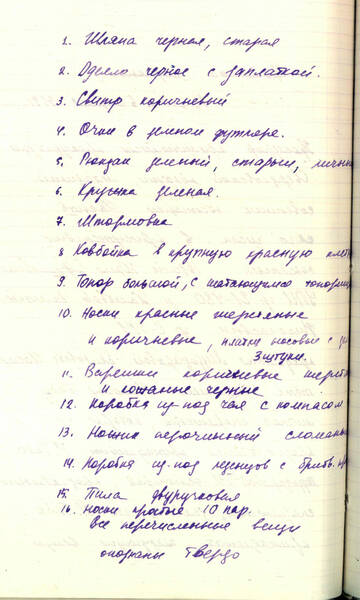 1. Шляпа черная, старая
2. Одеяло черное с заплаткой.
3. Свитр коричневый
4. Очки в зеленом футляре.
5. Рюкзак зеленый, старый, личный
6. Кружка зеленая.
7. Штормовка
8 Ковбойка в крупную красную клетку
9. Топор большой, с шатающимся топорищ
10. Носки красные шерстяные
и коричневые, платки носовые с
3 штуки.
11. Варешки коричневые шерст
и кожаные черные
12. Коробка из-под чая с компасом
13. Ножик перочинный сломаный
14. Коробка из-под леденцов с бритв.
15. Пила двуручковая
16. Носки простые 10 пар.
Все перечисленные вещи
опознаны твердо